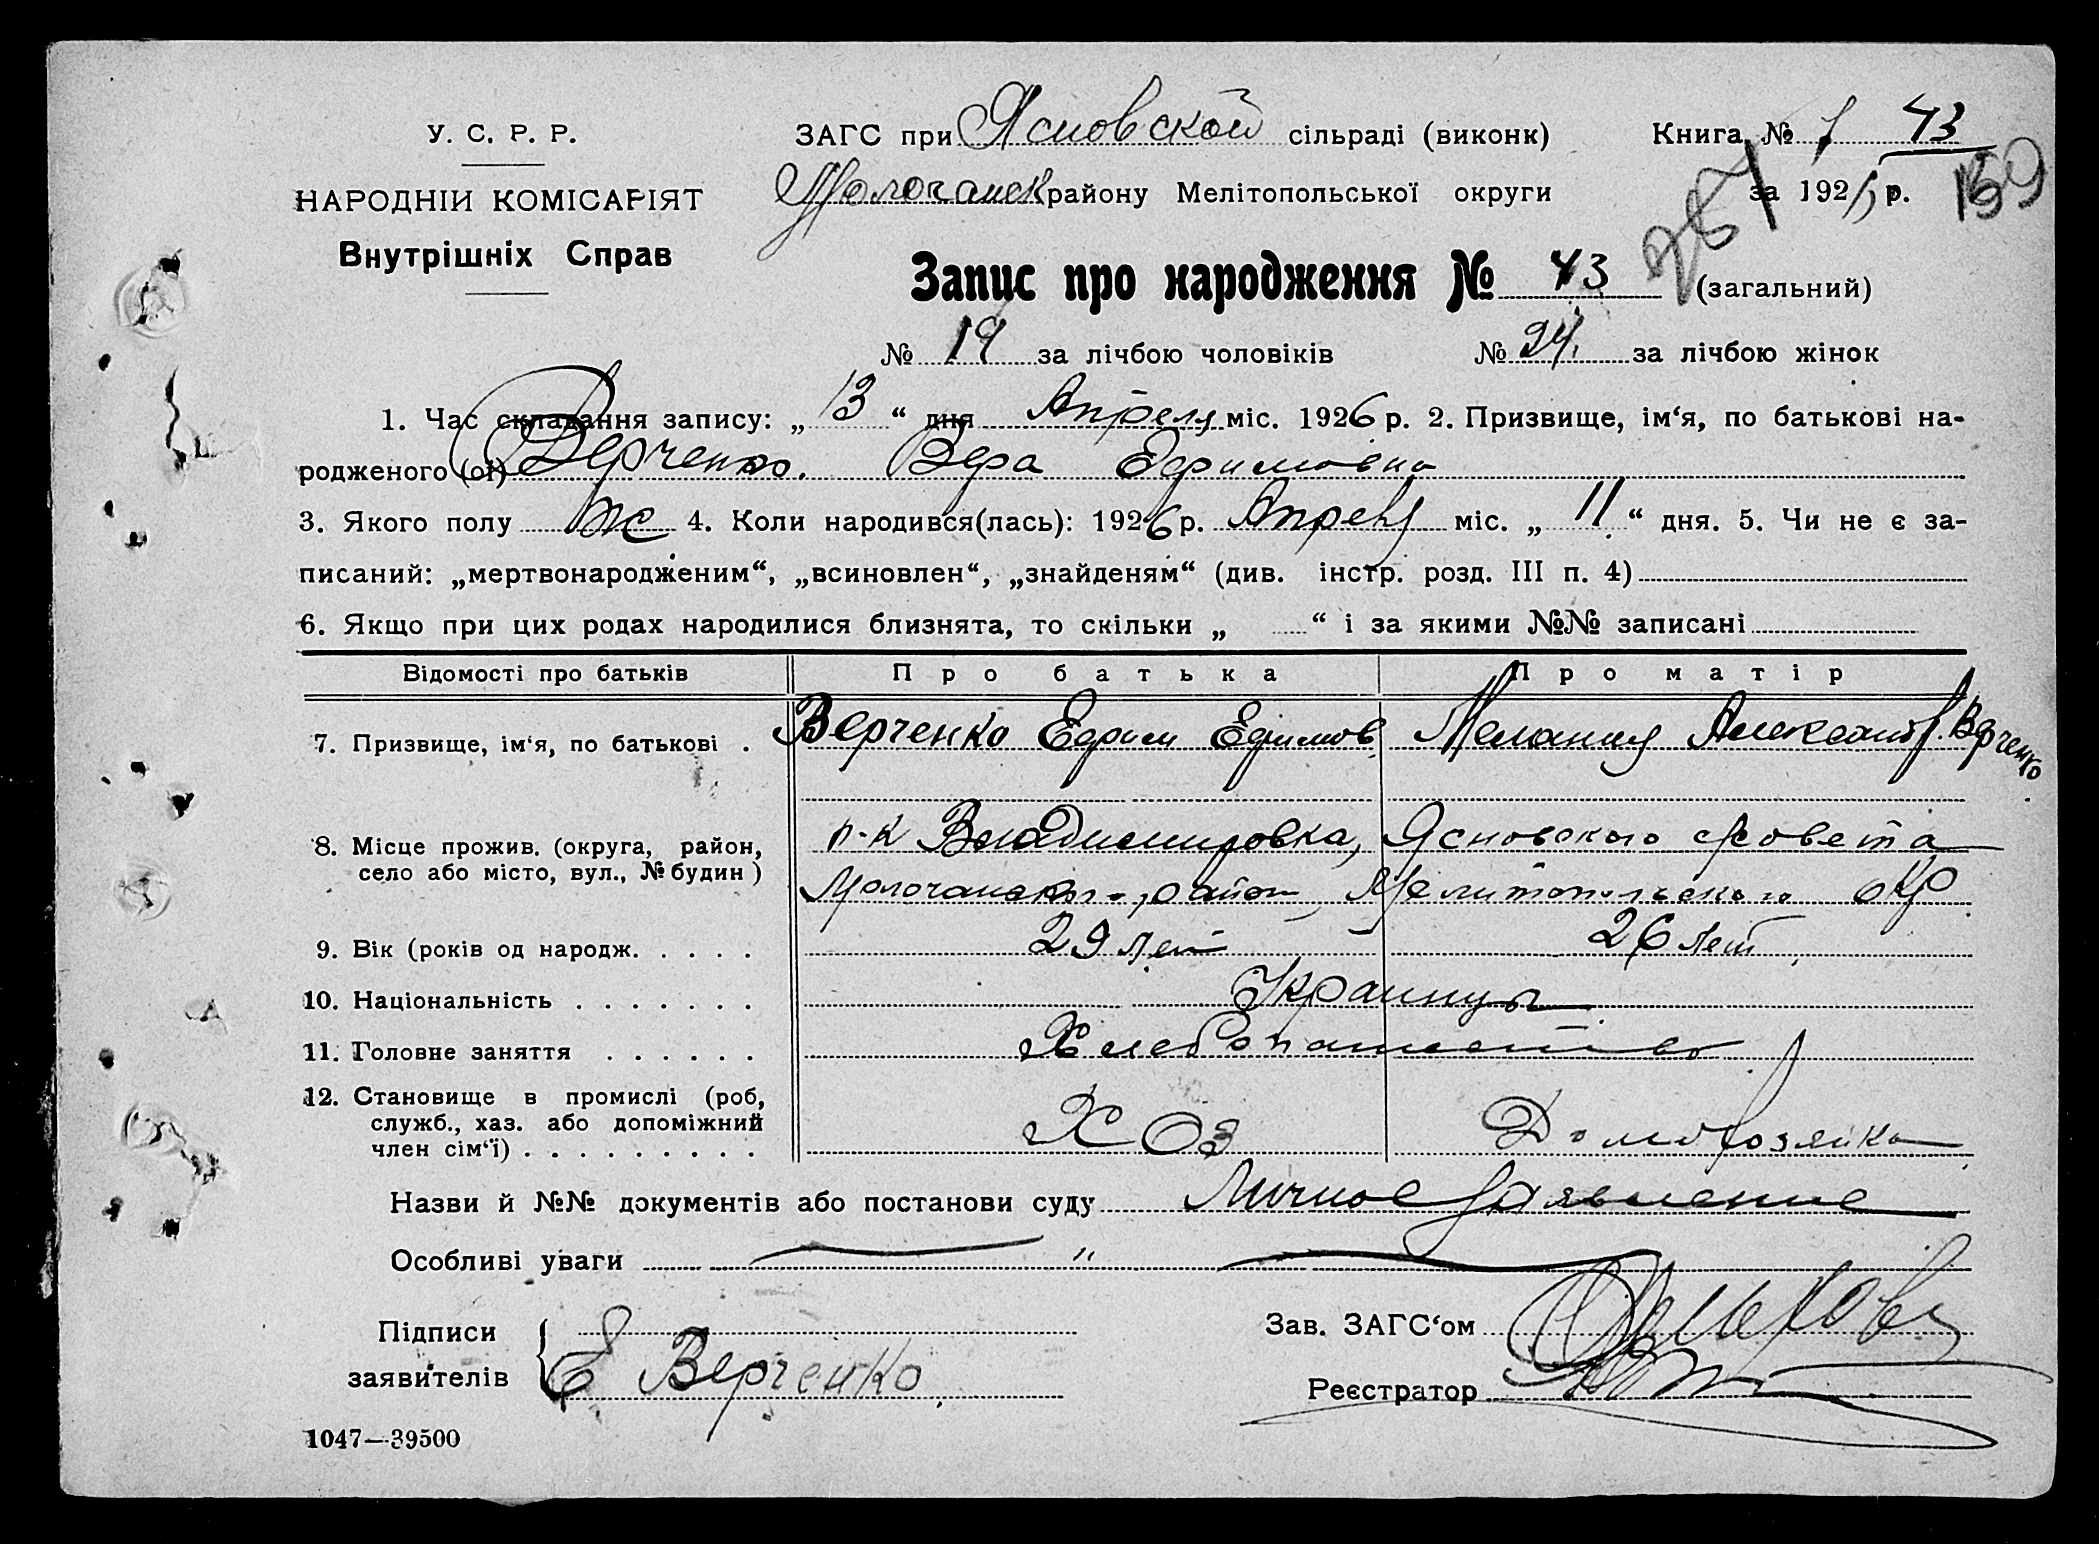 У. С. Р. Р.
НАРОДНІЙ КОМІСАРІЯТ
Внутрішніх Справ
ЗАГС при Ясновской сільраді (виконк)
Молочанск району Мелітопольської округи
Книга № 1 43
за 192 р. 159
Запис про народження № 43 (загальний)
№ 19 за лічбою чоловіків № 24 за лічбою жінок
1. Час складання запису: „ 13 “ дня Апреля міс. 1926 р. 2. Призвище, ім‘я, по батькові на-
родженого (ої) Верченко. Вера Ефимовна
3. Якого полу ж 4. Коли народився(лась): 1926 р. Апреля міс. „ 11 “ дня. 5. Чи не є за-
писаний: „мертвонародженим“, „всиновлен“, „знайденям“ (див. інстр. розд. III п. 4)
6. Якщо при цих родах народилися близнята, то скільки „ “ і за якими №№ записані
Відомості про батьків Про батька Про матір
7. Призвище, ім‘я, по батькові . Верченко Ефим Ефимов. Мелания Александр. Верченко.
8. Місце прожив. (округа, район, п-к Владимировка, Ясновского совета
село або місто, вул., № будин ) Молочанского район, Мелитопольского окр
9. Вік (років од народж. . . . . 29 лет 26 лет
10. Національність . . . . . . . Украинцы
11. Головне заняття . . . . . . Хлебопашество
12. Становище в промислі (роб,
служб., хаз. або допоміжний
член сім‘ї) . . . . . . . . . Хоз Домохозяйка
Назви й №№ документів або постанови суду Личное заявление
Особливі уваги — " —
Підписи
заявителів Е Верченко
Зав. ЗАГС‘ом
Реєстратор
1047—39500